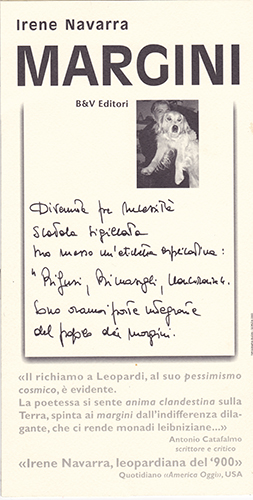 Irene Navarra
MARGINI
B&V Editori
Divenuta per necessità
Scatola Sigillata
ho messo un'etichetta esplicativa:
"Rifiuti, Rimasugli,
Sono ormai parte integrante
del popolo dei margini.
«Il richiamo a Leopardi, al suo pessimismo
cosmico, è evidente.
La poetessa si sente anima clandestina sulla
Terra, spinta ai margini dall'indifferenza dila-
gante, che ci rende monadi leibniziane...»
Antonio Catafalmo
scrittore e critico
«Irene Navarra, leopardiana del '900»
Quotidiano «America Oggi», USA